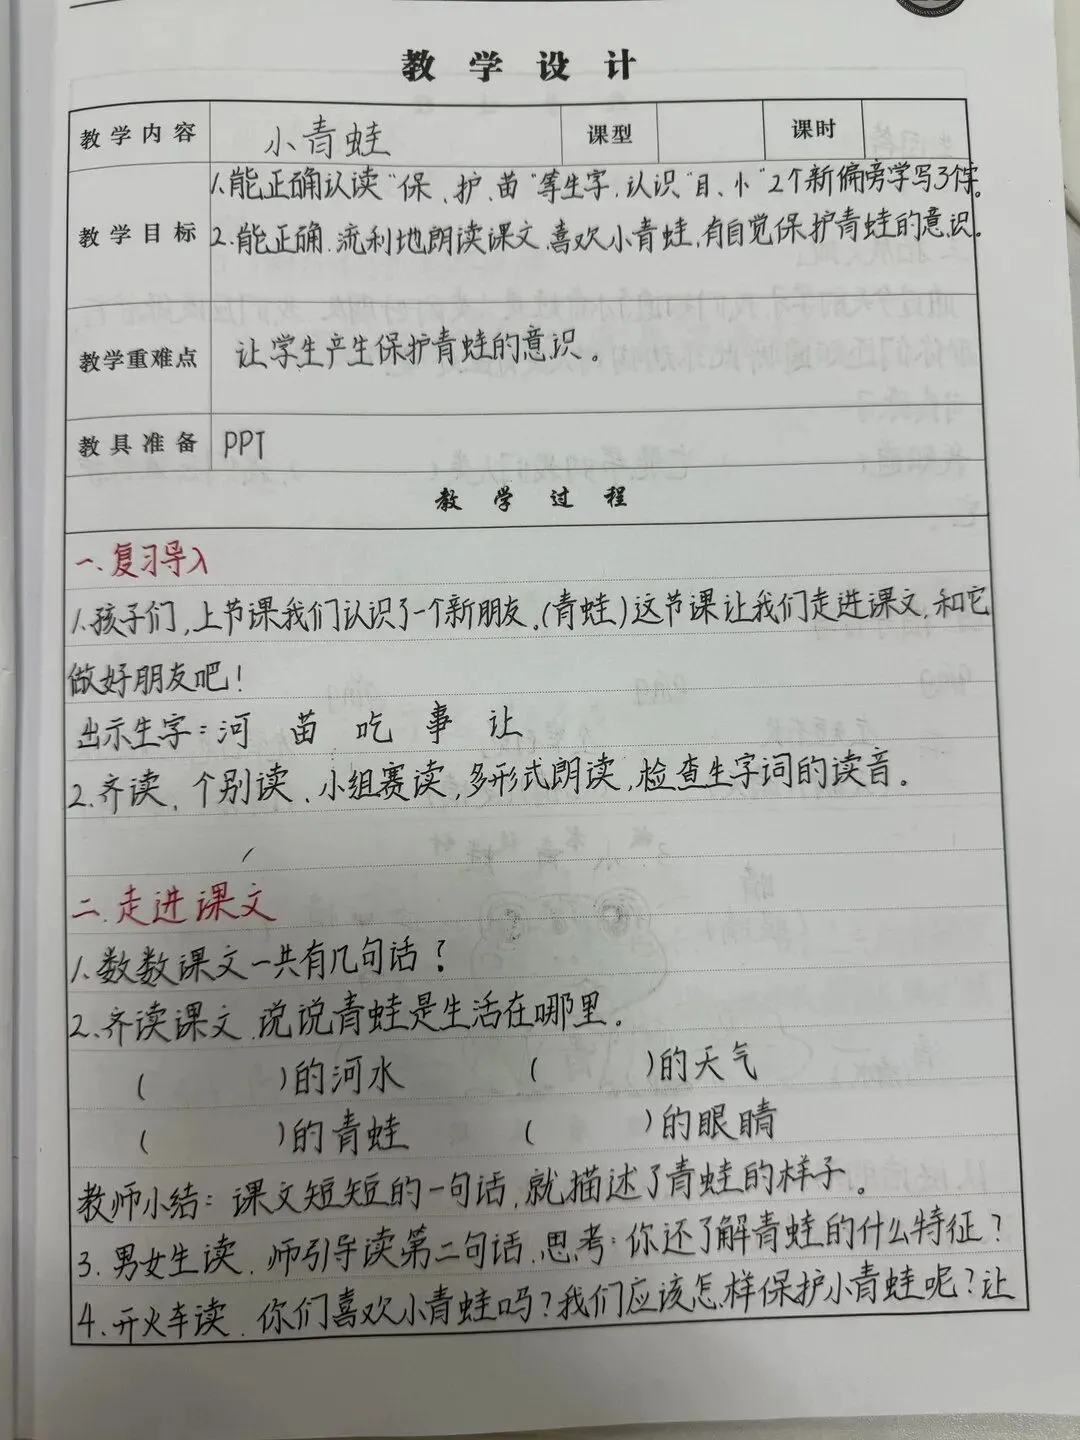 教学设计
教学内容 小青蛙 课型 课时
1.能正确认读“保、护、苗”等生字,认识“目、忄”2个新偏旁学写3个字。
教学目标 2.能正确、流利地朗读课文,喜欢小青蛙,有自觉保护青蛙的意识。
教学重难点 让学生产生保护青蛙的意识。
教具准备 PPT
教学过程
一.复习导入
1.孩子们,上节课我们认识了一个新朋友.(青蛙)这节课让我们走进课文,和它
做好朋友吧!
出示生字:河 苗 吃 事 让
2.齐读、个别读、小组赛读,多形式朗读,检查生字词的读音。
二.走进课文
1.数数课文一共有几句话?
2.齐读课文,说说青蛙是生活在哪里。
( )的河水 ( )的天气
( )的青蛙 ( )的眼睛
教师小结:课文短短的一句话,就描述了青蛙的样子。
3.男女生读,师引导读第二句话,思考:你还了解青蛙的什么特征?
4.开火车读,你们喜欢小青蛙吗?我们应该怎样保护小青蛙呢?让